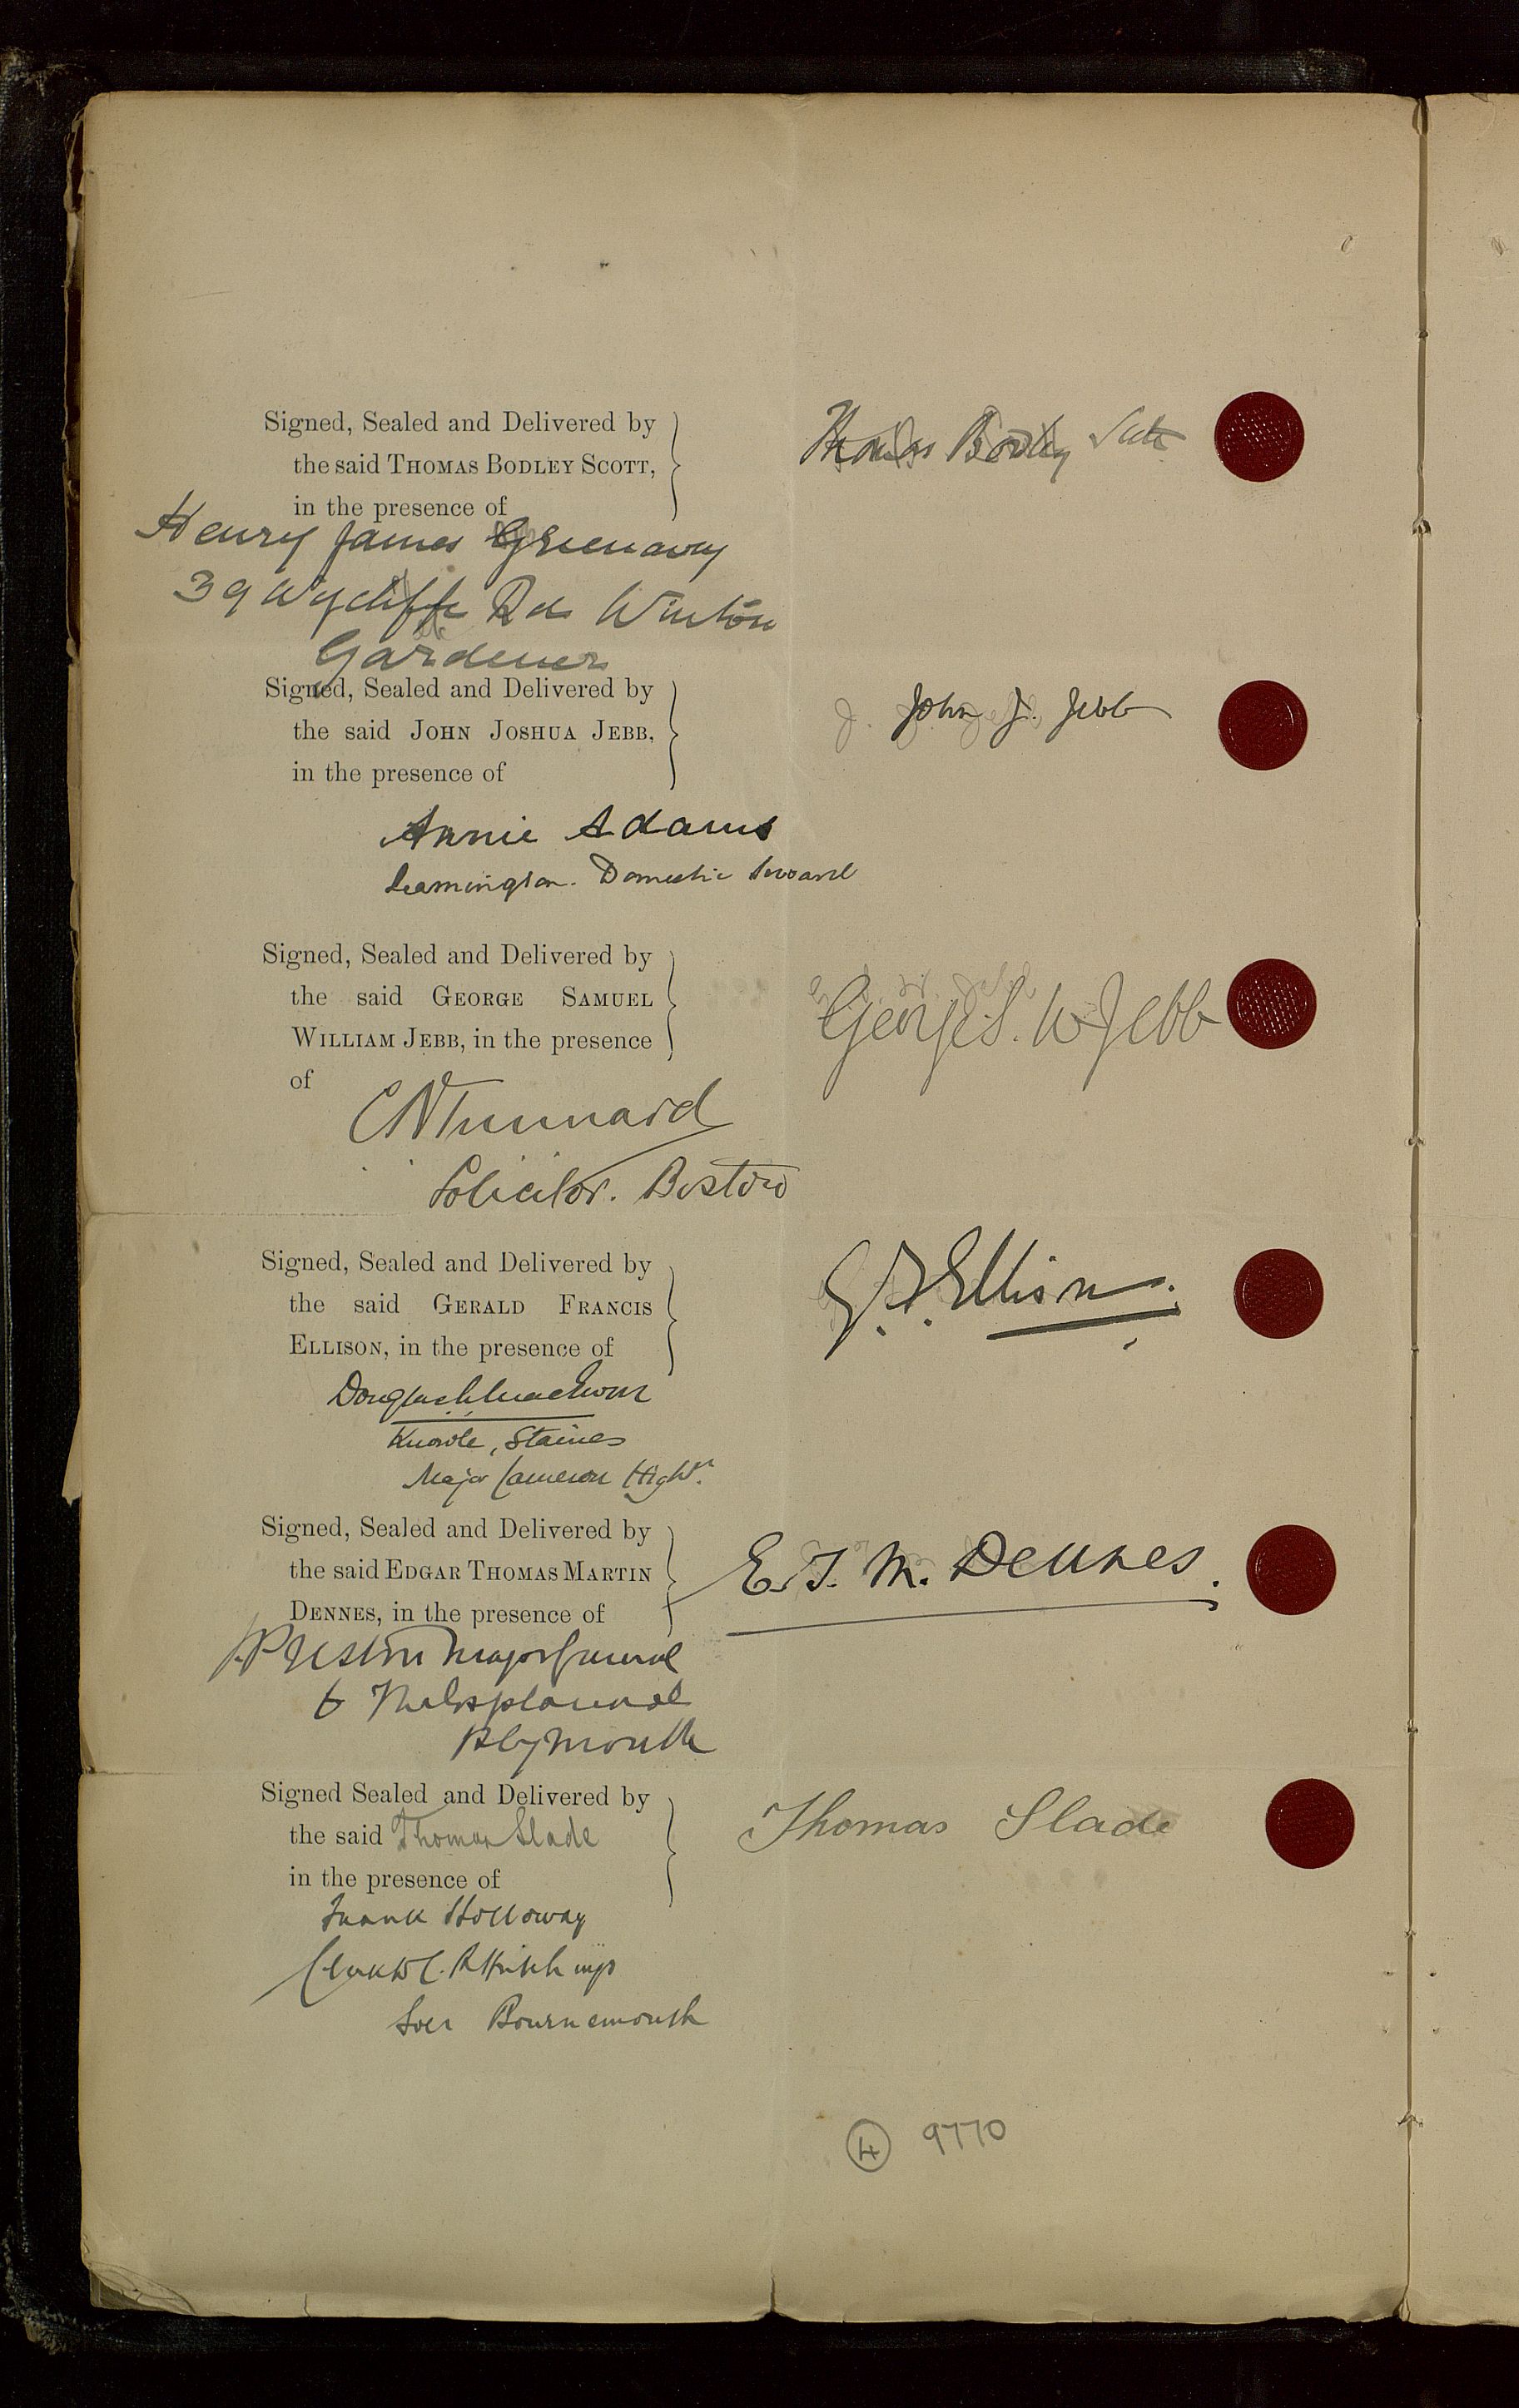 Signed, Sealed and Delivered by
the said THOMAS BODLEY SCOTT,
in the presence of
Thomas Bodley Scott
Henry James Greenaway
39 Wycliffe Rd Winton
Gardener
Signed, Sealed and Delivered by
the said JOHN JOSHUA JEBB,
in the presence of
John J. Jebb
Annie Adams
Leamington. Domestic Servant
Signed, Sealed and Delivered by
the said GEORGE SAMUEL
WILLIAM JEBB, in the presence
of
George S. W Jebb
Tunnard
Solicitor. Boston
Signed, Sealed and Delivered by
the said GERALD FRANCIS
ELLISON, in the presence of
G. F. Ellison.
Douglas
Knowle, Staines
Major Cameron Highrs.
Signed, Sealed and Delivered by
the said EDGAR THOMAS MARTIN
DENNES, in the presence of
E. T. M. Dennes.
Preston Major General
6
Plymouth
Signed Sealed and Delivered by
the said Thomas Slade
in the presence of
Thomas Slade
Frank Holloway
Clerk to
Solr Bournemouth
4 9770